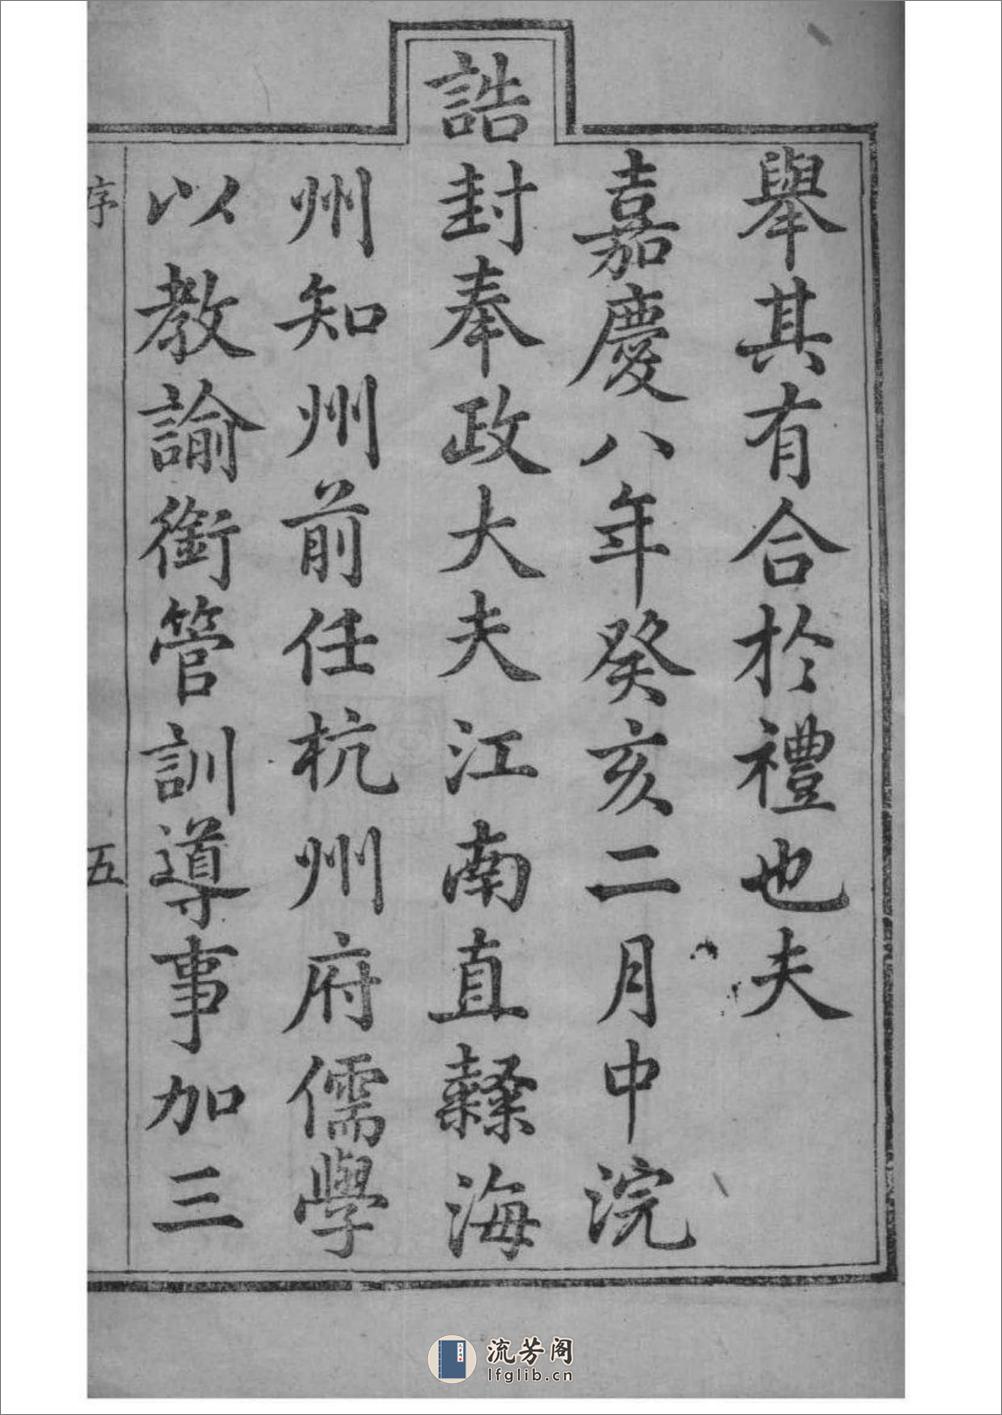 舉其有合於禮也夫
嘉慶八年癸亥二月中浣
誥封奉政大夫江南直隸海
州知州前任杭州府儒學
以教諭銜管訓導事加三
序
五
流芳阁
lfglib.cn